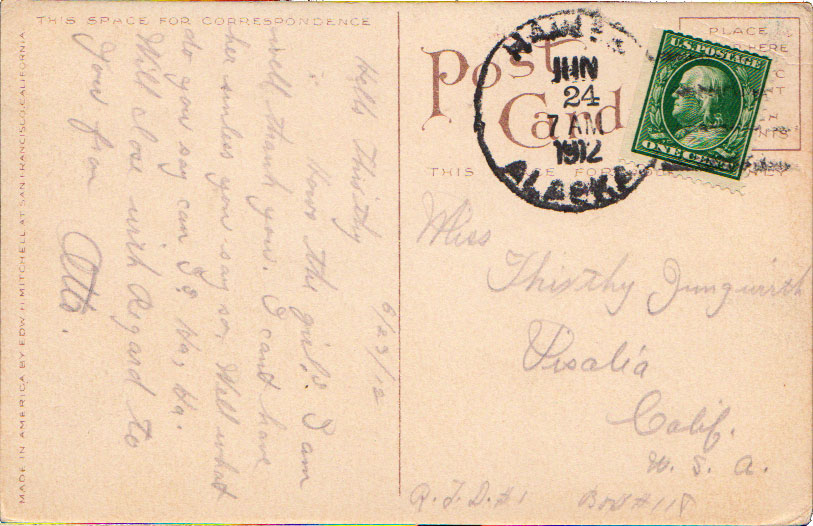 THIS SPACE FOR CORRESPONDENCE
6/23/12
Hello Thisthy
hows the girl? I am
well thank you. I cant have
her unless you say so, Well what
do you say can I? Ha, Ha.
Will close with Regard to
You from
Otto.
MADE IN AMERICA BY EDW. H. MITCHELL AT SAN FRANCISCO, CALIFORNIA.
Post Card
THIS FOR
PLACE
HERE
JUN
24
7 AM
1912
ALASKA
U.S. POSTAGE
ONE CENT
Miss
Thisthy Jungwirth
Visalia
Calif.
U. S. A.
R. F. D. #1 Box #118